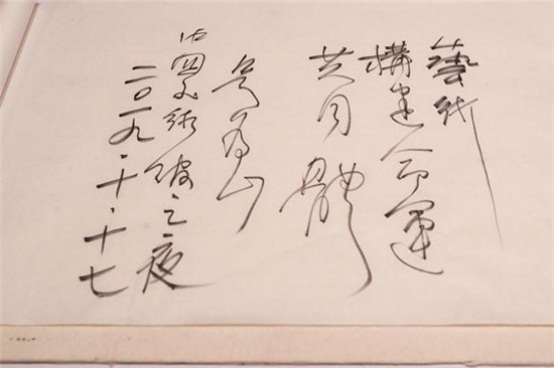 藝術
構建命運
共同體
吳為山
國美術館之夜
二〇一九·十·十七